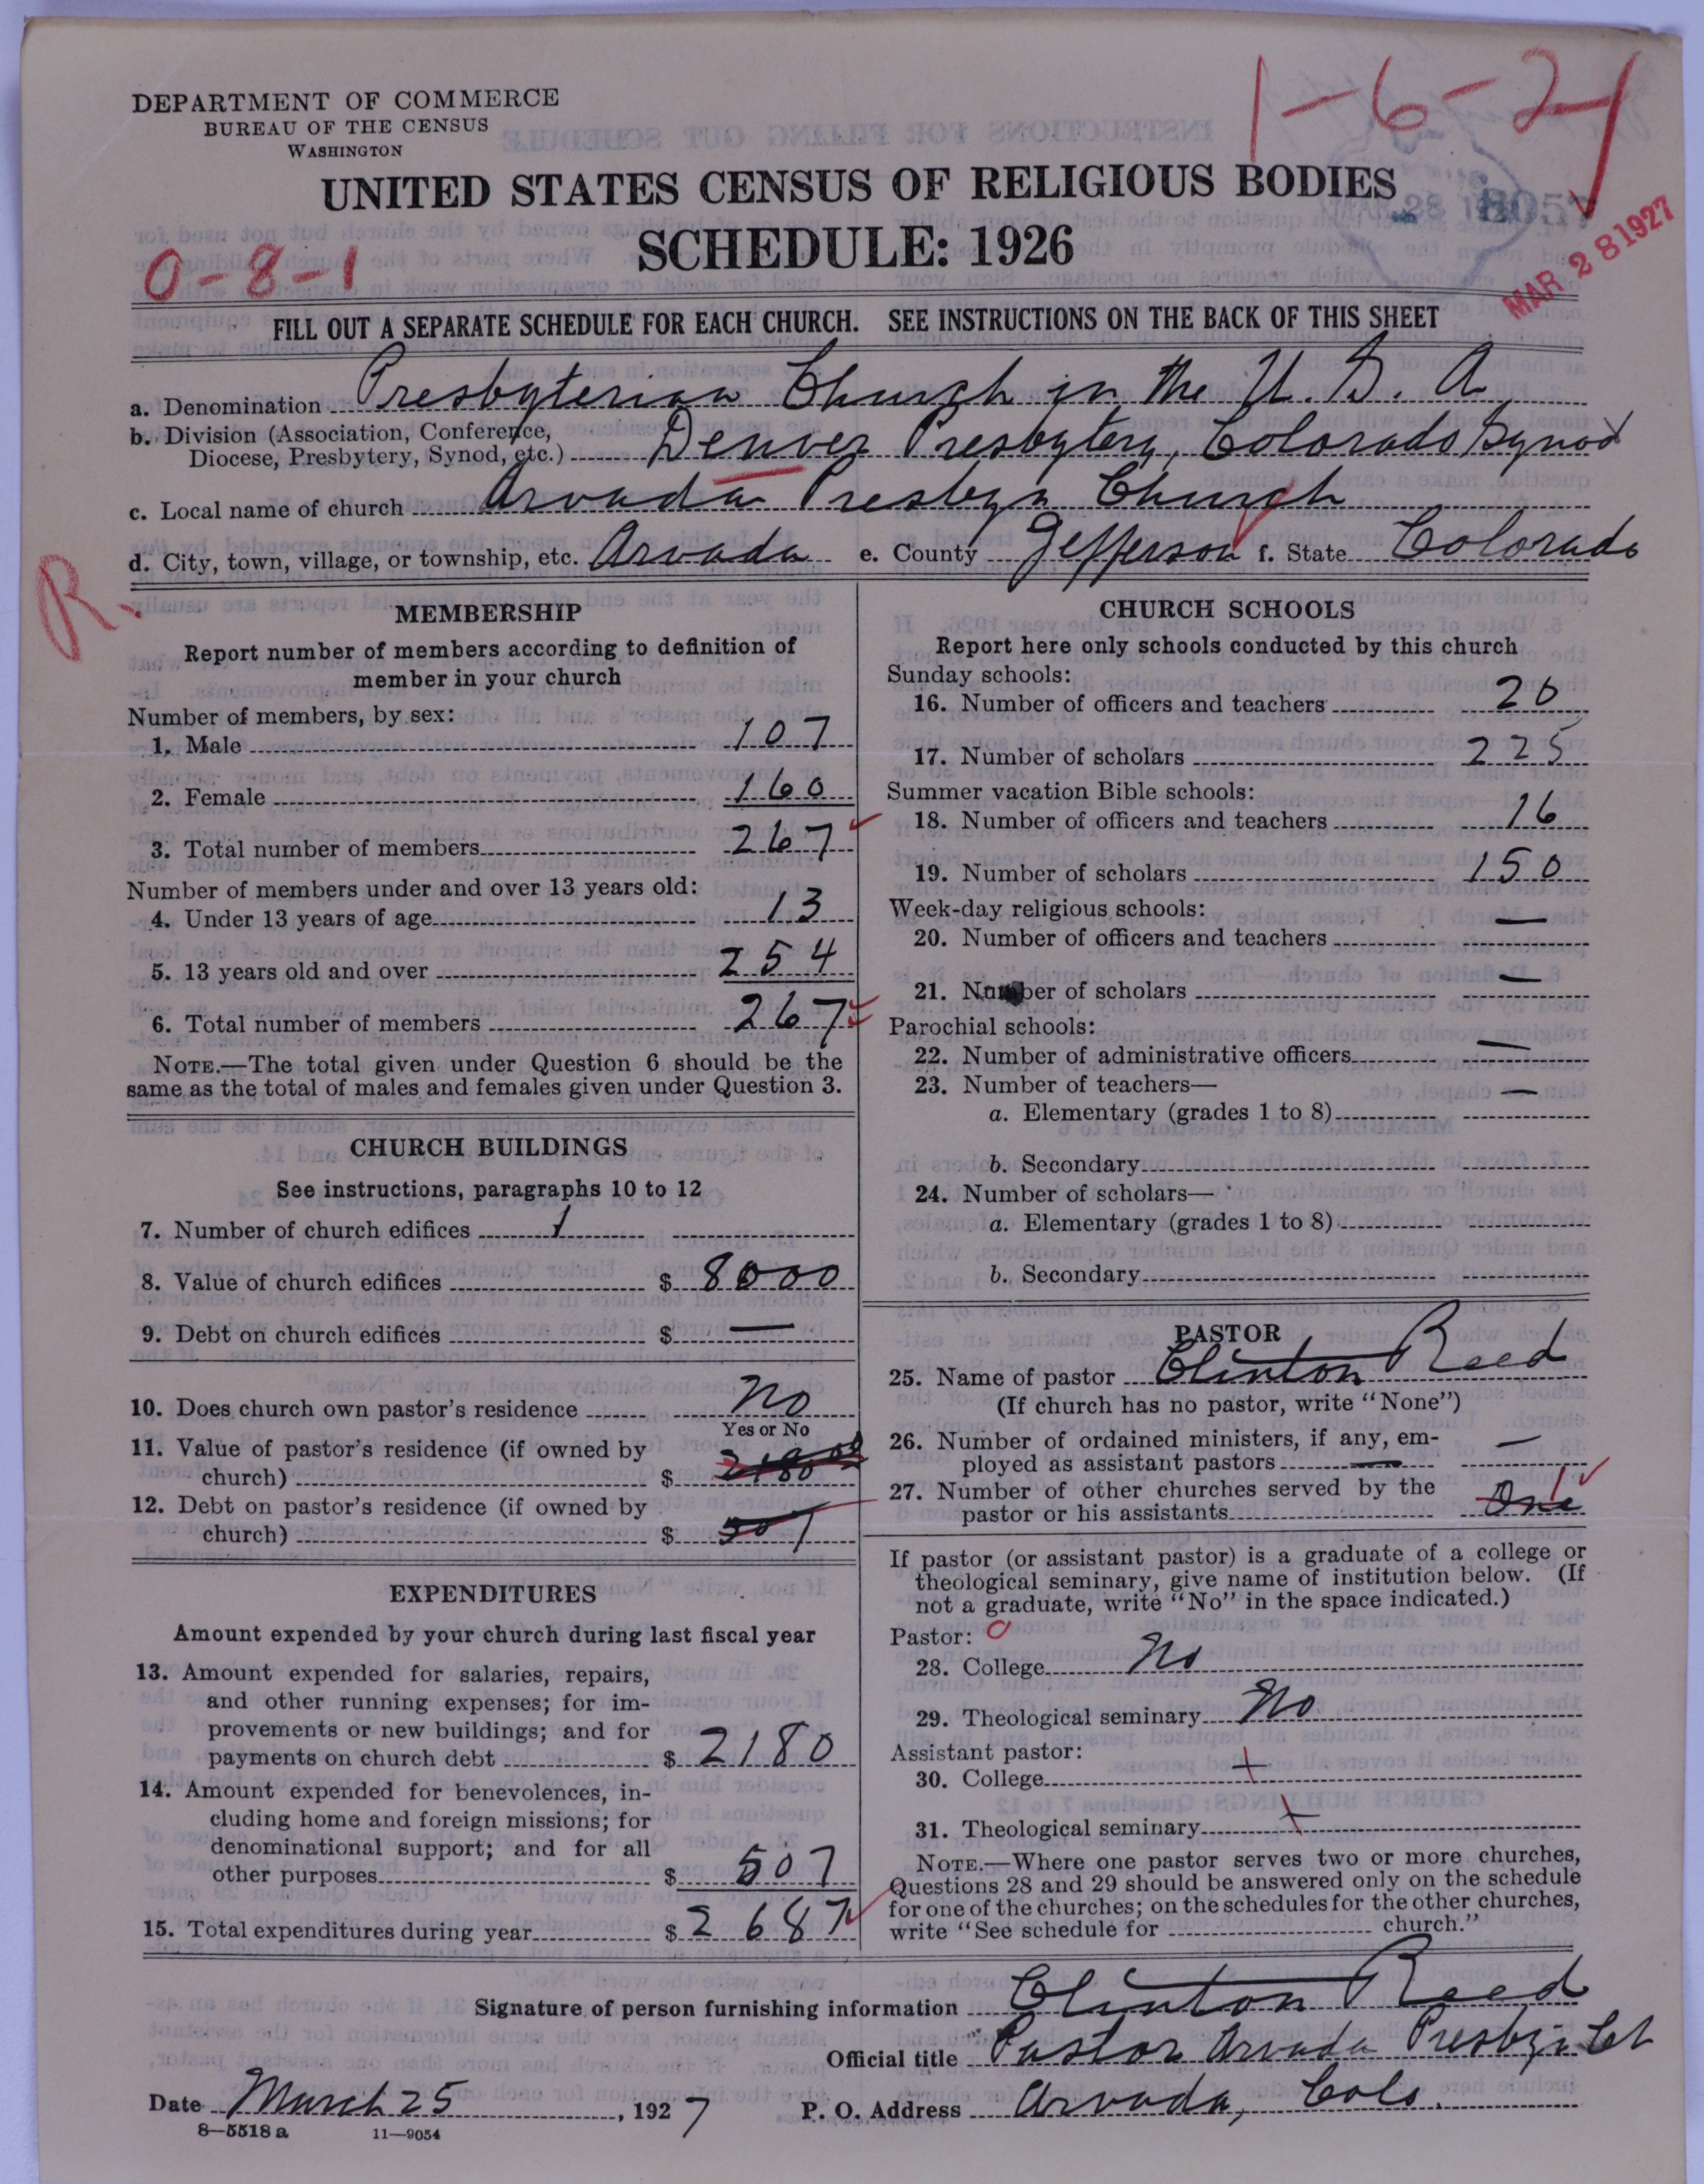 DEPARTMENT OF COMMERCE
BUREAU OF THE CENSUS
WASHINGTON
1-6-21
UNITED STATES CENSUS OF RELIGIOUS BODIES
SCHEDULE: 1926
8057
MAR 28 1927
0-8-1
FILL OUT A SEPARATE SCHEDULE FOR EACH CHURCH. SEE INSTRUCTIONS ON THE BACK OF THIS SHEET
a. Denomination Presbyterian Church in the U. S. A
b. Division (Association, Conference,
Diocese, Presbytery, Synod, etc.) Denver Presbytery, Colorado Synod
c. Local name of church Arvada Presbyn Church
d. City, town, village, or township, etc. Arvada e. County Jefferson f. State Colorado
R.
MEMBERSHIP
Report number of members according to definition of
member in your church
Number of members, by sex:
1. Male 107
2. Female 160
3. Total number of members 267
Number of members under and over 13 years old:
4. Under 13 years of age 13
5. 13 years old and over 254
6. Total number of members 267
NOTE.—The total given under Question 6 should be the
same as the total of males and females given under Question 3.
CHURCH BUILDINGS
See instructions, paragraphs 10 to 12
7. Number of church edifices 1
8. Value of church edifices $ 8000
9. Debt on church edifices $ —
10. Does church own pastor's residence No
Yes or No
11. Value of pastor's residence (if owned by
church) $ 2180
12. Debt on pastor's residence (if owned by
church) $ 507
EXPENDITURES
Amount expended by your church during last fiscal year
13. Amount expended for salaries, repairs,
and other running expenses; for im-
provements or new buildings; and for
payments on church debt $ 2180
14. Amount expended for benevolences, in-
cluding home and foreign missions; for
denominational support; and for all
other purposes $ 507
15. Total expenditures during year $ 2687
CHURCH SCHOOLS
Report here only schools conducted by this church
Sunday schools:
16. Number of officers and teachers 20
17. Number of scholars 225
Summer vacation Bible schools:
18. Number of officers and teachers 16
19. Number of scholars 150
Week-day religious schools:
20. Number of officers and teachers —
21. Number of scholars —
Parochial schools:
22. Number of administrative officers —
23. Number of teachers— —
a. Elementary (grades 1 to 8)
b. Secondary
24. Number of scholars—
a. Elementary (grades 1 to 8)
b. Secondary
PASTOR
25. Name of pastor Clinton Reed
(If church has no pastor, write "None")
26. Number of ordained ministers, if any, em-
ployed as assistant pastors —
27. Number of other churches served by the
pastor or his assistants One 1
If pastor (or assistant pastor) is a graduate of a college or
theological seminary, give name of institution below. (If
not a graduate, write "No" in the space indicated.)
Pastor: 0
28. College No
29. Theological seminary No
Assistant pastor:
30. College
31. Theological seminary
NOTE.—Where one pastor serves two or more churches,
Questions 28 and 29 should be answered only on the schedule
for one of the churches; on the schedules for the other churches,
write "See schedule for church."
Signature of person furnishing information Clinton Reed
Official title Pastor Arvada Presbyn Ch
Date March 25, 1927 P. O. Address Arvada, Colo.
8—5518 a 11—9054